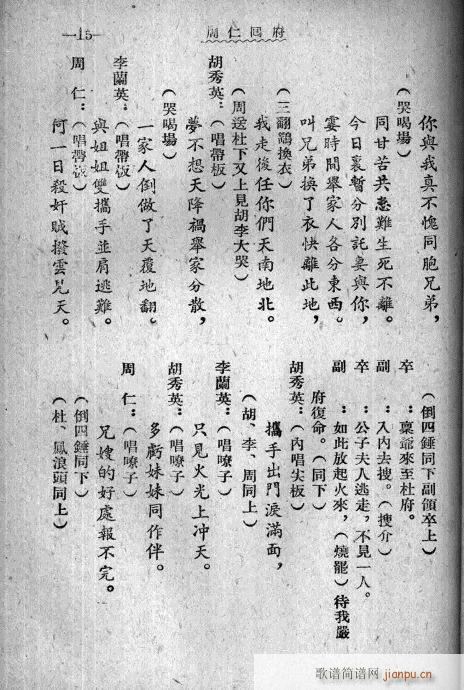 —15—
周仁囘府
你與我真不愧同胞兄弟，
（哭喝場）
同甘苦共患難生死不離。
今日裏暫分別託妻與你，
霎時間舉家人各分東西。
叫兄弟換了衣快離此地，
（三翻鷂換衣）
我走後任你們天南地北。
（周送杜下又上見胡李大哭）
胡秀英：（唱帶板）
夢不想天降禍舉家分散，
（哭喝場）
一家人倒做了天覆地翻。
李蘭英：（唱帶板）
與姐姐雙攜手並肩逃難。
周　仁：（唱帶板）
何一日殺奸賊撥雲見天。
（倒四錘同下副領卒上）
卒　：稟爺來至杜府。
副　：入內去搜。（搜介）
卒　：公子夫人逃走，不見一人。
副　：如此放起火來，（燒罷）待我嚴
府復命。（同下）
胡秀英：（內唱尖板）
攜手出門淚滿面，
（胡、李、周同上）
李蘭英：（唱嘹子）
只見火光上冲天。
胡秀英：（唱嘹子）
多虧妹妹同作伴。
周　仁：（唱嘹子）
兄嫂的好處報不完。
（倒四錘同下）
（杜、鳳浪頭同上）
歌谱简谱网
jianpu.cn